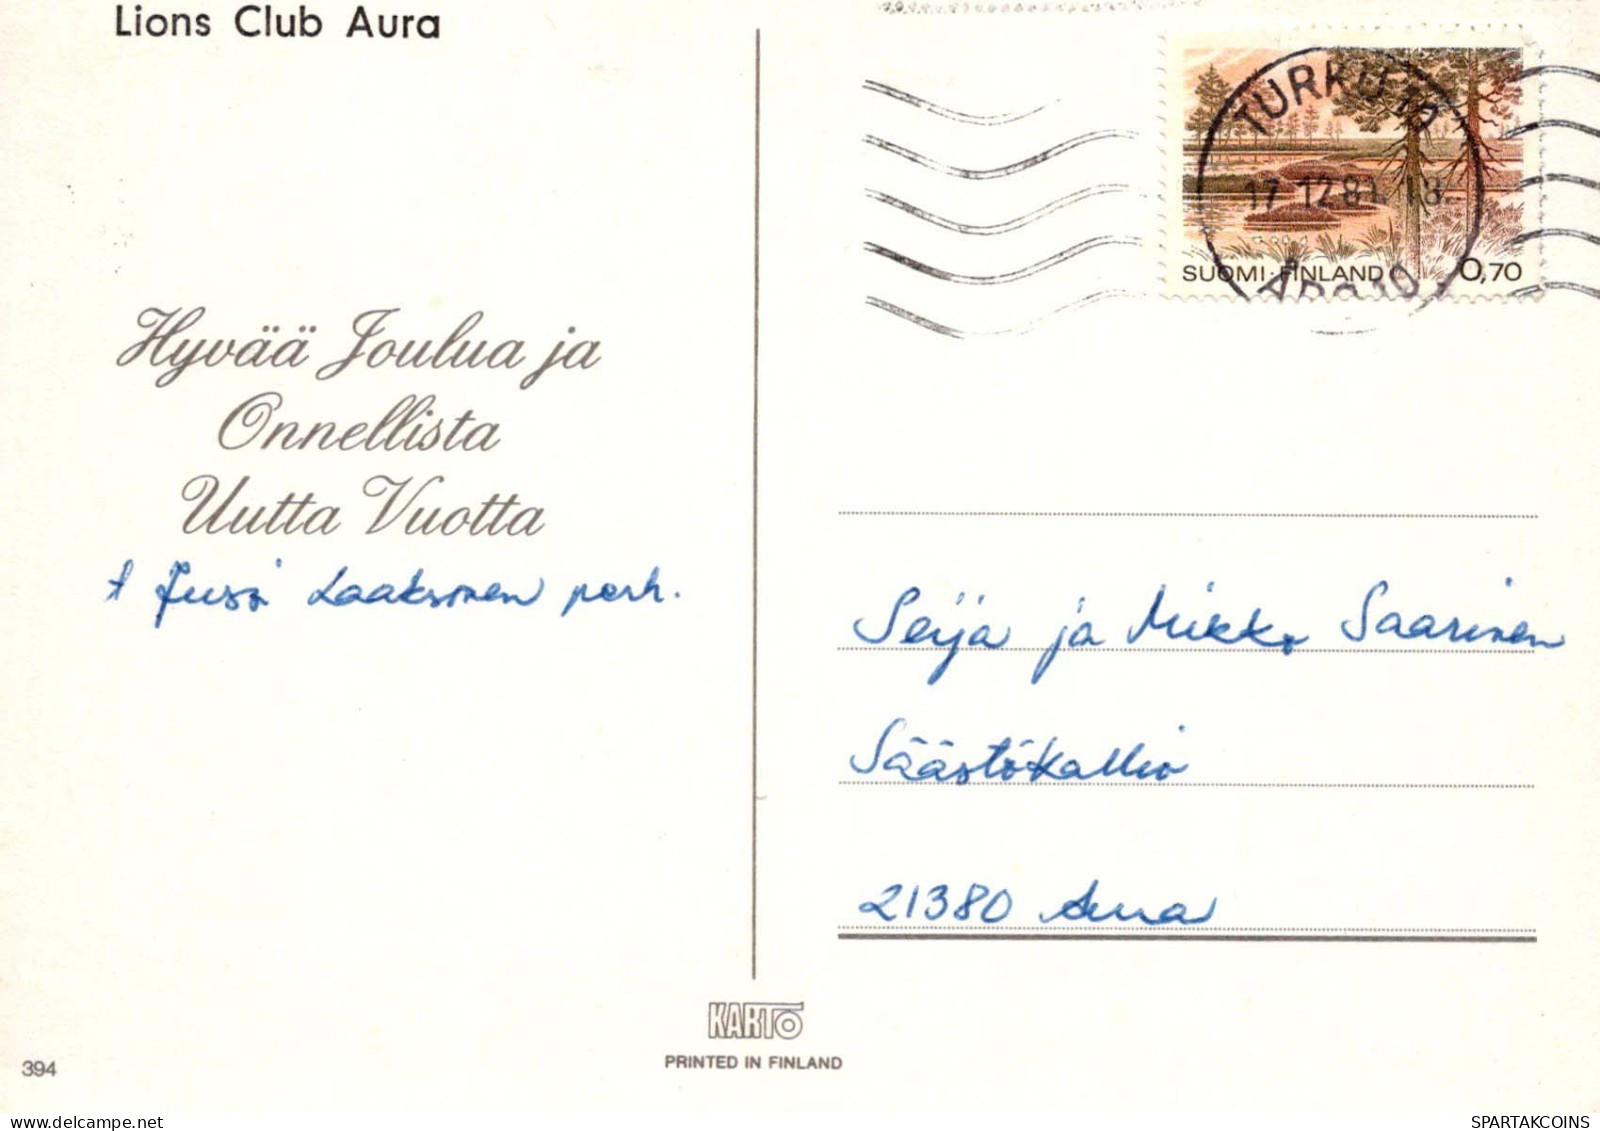 Lions Club Aura
TURKU 10
17.12.81. 18
ÅBO 10
SUOMI · FINLAND 0,70
Hyvää Joulua ja
Onnellista
Uutta Vuotta
t Jussi Laaksonen perh.
Seija ja Mikko Saarinen
Säästökallio
21380 Aura
KARTO
PRINTED IN FINLAND
394
SPARTAKCOINS